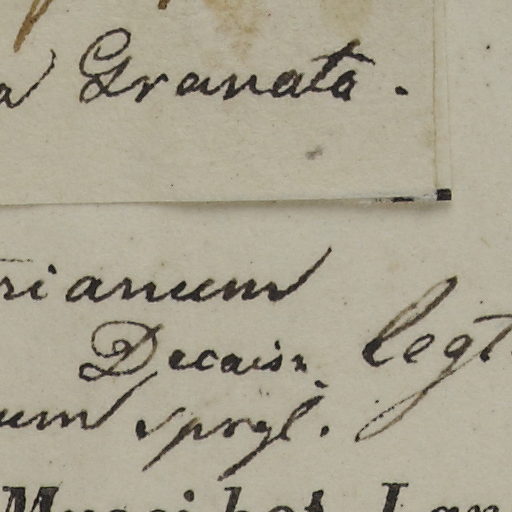 a Granata.
rianum
Decaisn. legt.
um Spryl.
Musei bot. Lan